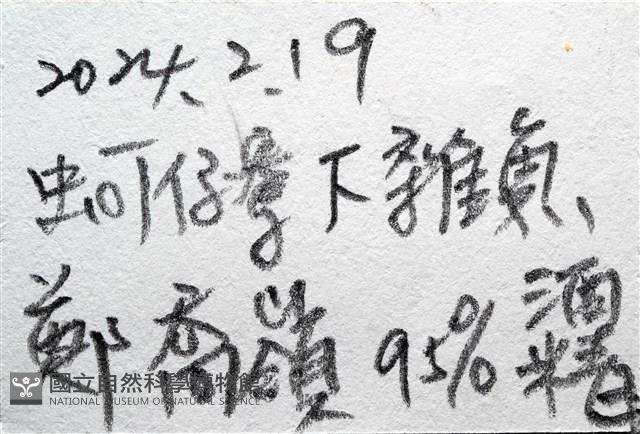 2024.2.19
蚵仔寮下雜魚、
鄭喬嶺 95% 酒精
國立自然科學博物館
NATIONAL MUSEUM OF NATURAL SCIENCE